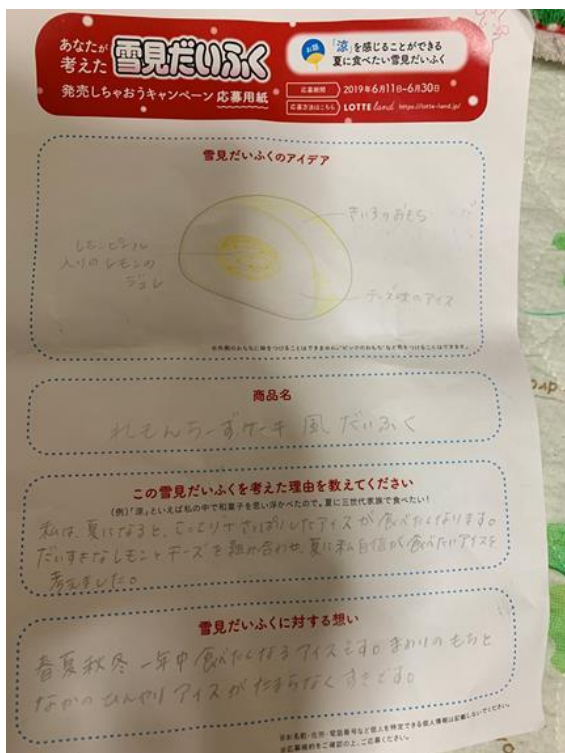 あなたが
考えた
雪見だいふく
発売しちゃおうキャンペーン 応募用紙
お題
「涼」を感じることができる
夏に食べたい雪見だいふく
応募期間 2019年6月11日-6月30日
応募方法はこちら LOTTE land https://lotte-land.jp/
雪見だいふくのアイデア
きいろのおもち
レモンピール
入りのレモンの
ジュレ
チーズ味のアイス
※外側のおもちに味をつけることはできません。"ピンクのおもち"など色をつけることはできます。
商品名
れもんちーずケーキ風だいふく
この雪見だいふくを考えた理由を教えてください
(例)「涼」といえば私の中で和菓子を思い浮かべたので。夏に三世代家族で食べたい!
私は、夏になると、こってり+さっぱりしたアイスが食べたくなります。
だいすきなレモンとチーズを組み合わせ、夏に私自信が食べたいアイスを
考えました。
雪見だいふくに対する想い
春夏秋冬 一年中食べたくなるアイスです。まわりのもちと
なかのひんやりアイスがたまらなくすきです。
※お名前・住所・電話番号など個人を特定できる個人情報は記載しないでください。
※応募規約をご確認の上、ご応募ください。